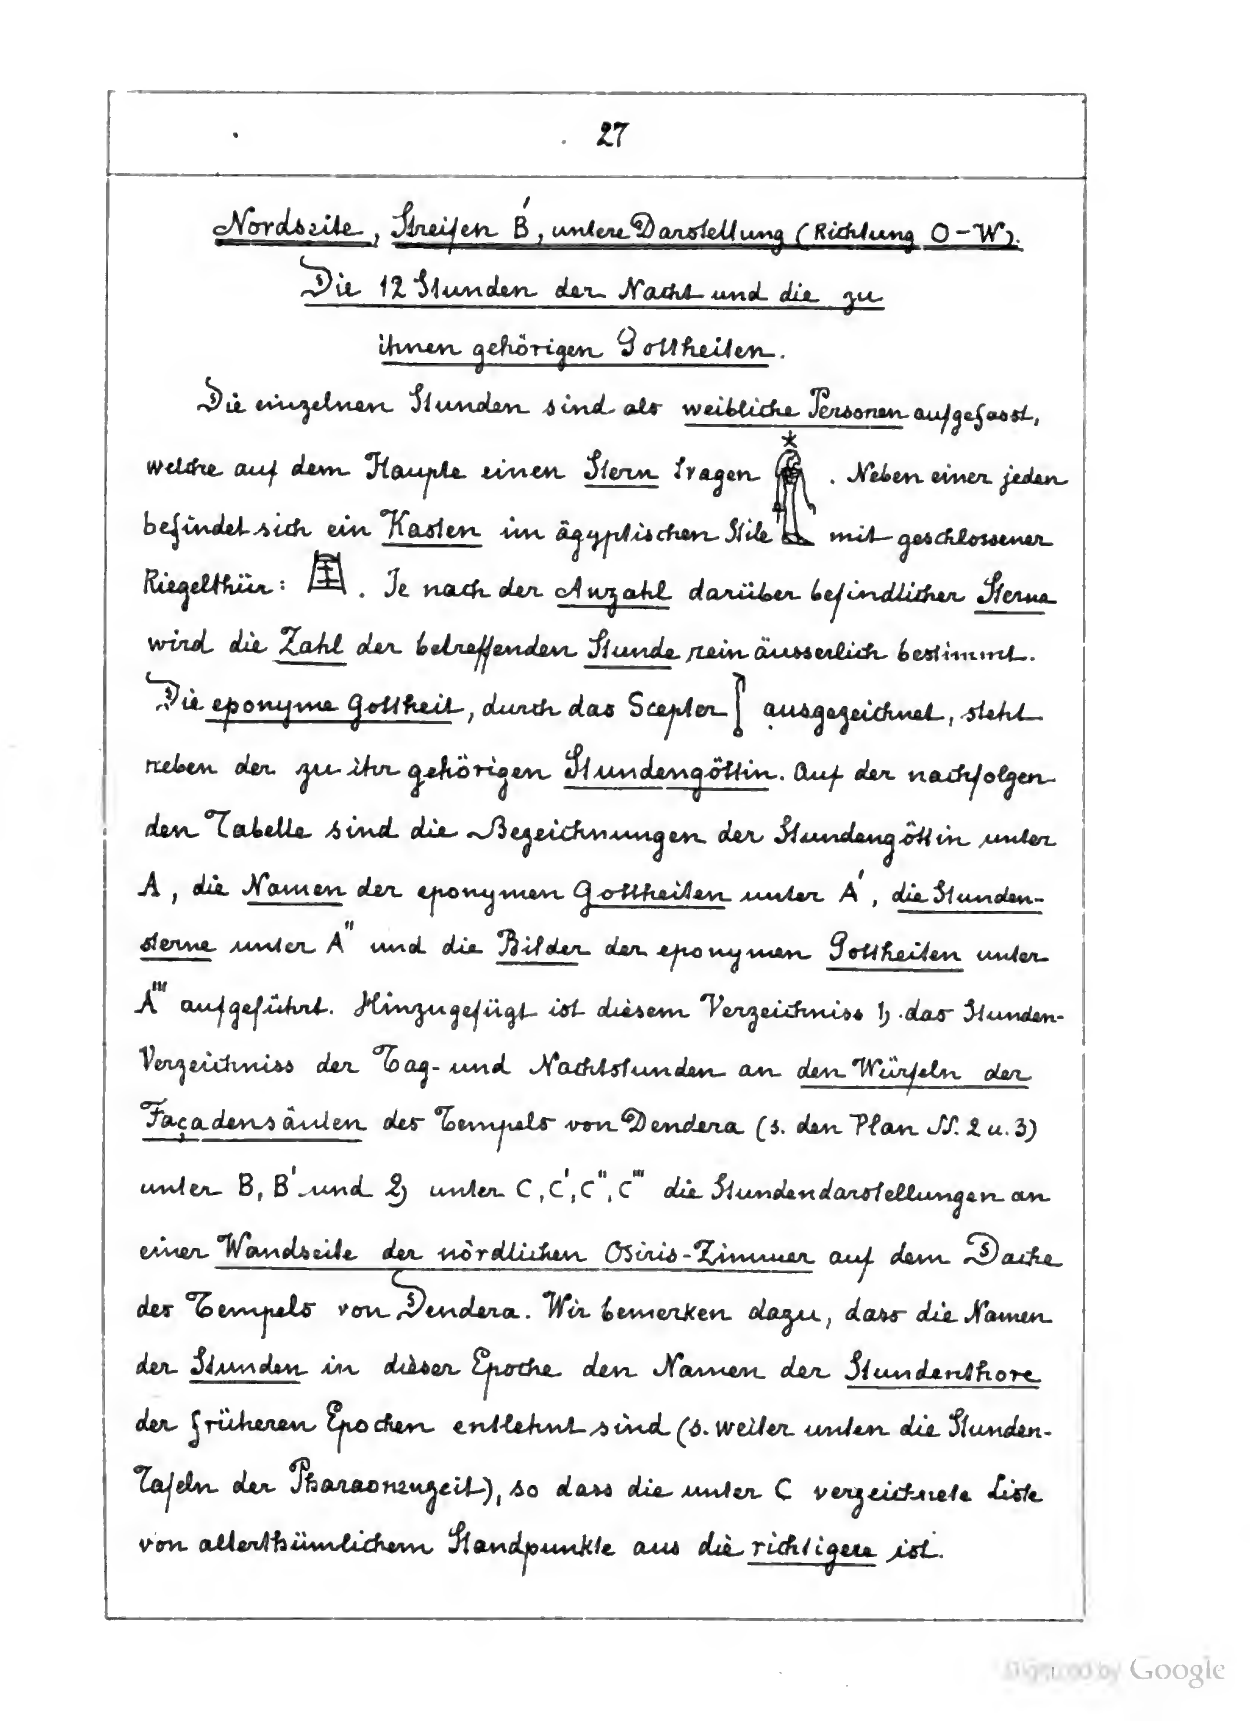 27
Nordseite, Streifen B', untere Darstellung (Richtung O-W).
Die 12 Stunden der Nacht und die zu
ihnen gehörigen Gottheiten.
Die einzelnen Stunden sind als weibliche Personen aufgefasst,
welche auf dem Haupte einen Stern tragen . Neben einer jeden
befindet sich ein Kasten im ägyptischen Stile mit geschlossener
Riegelthür: . Je nach der Anzahl darüber befindlicher Sterne
wird die Zahl der betreffenden Stunde rein äusserlich bestimmt.
Die eponyme Gottheit, durch das Scepter ausgezeichnet, steht
neben der zu ihr gehörigen Stundengöttin. Auf der nachfolgen
den Tabelle sind die Bezeichnungen der Stundengöttin unter
A, die Namen der eponymen Gottheiten unter A', die Stunden-
sterne unter A'' und die Bilder der eponymen Gottheiten unter
A''' aufgeführt. Hinzugefügt ist diesem Verzeichniss 1) das Stunden-
Verzeichniss der Tag- und Nachtstunden an den Würfeln der
Façadensäulen des Tempels von Dendera (s. den Plan NN. 2 u. 3)
unter B, B' und 2) unter C, C', C'', C''' die Stundendarstellungen an
einer Wandseite der nördlichen Osiris-Zimmer auf dem Dache
des Tempels von Dendera. Wir bemerken dazu, dass die Namen
der Stunden in dieser Epoche den Namen der Stundenthore
der früheren Epochen entlehnt sind (s. weiter unten die Stunden-
Tafeln der Pharaonenzeit), so dass die unter C verzeichnete Liste
von alterthümlichem Standpunkte aus die richtigere ist.
Digitized by Google